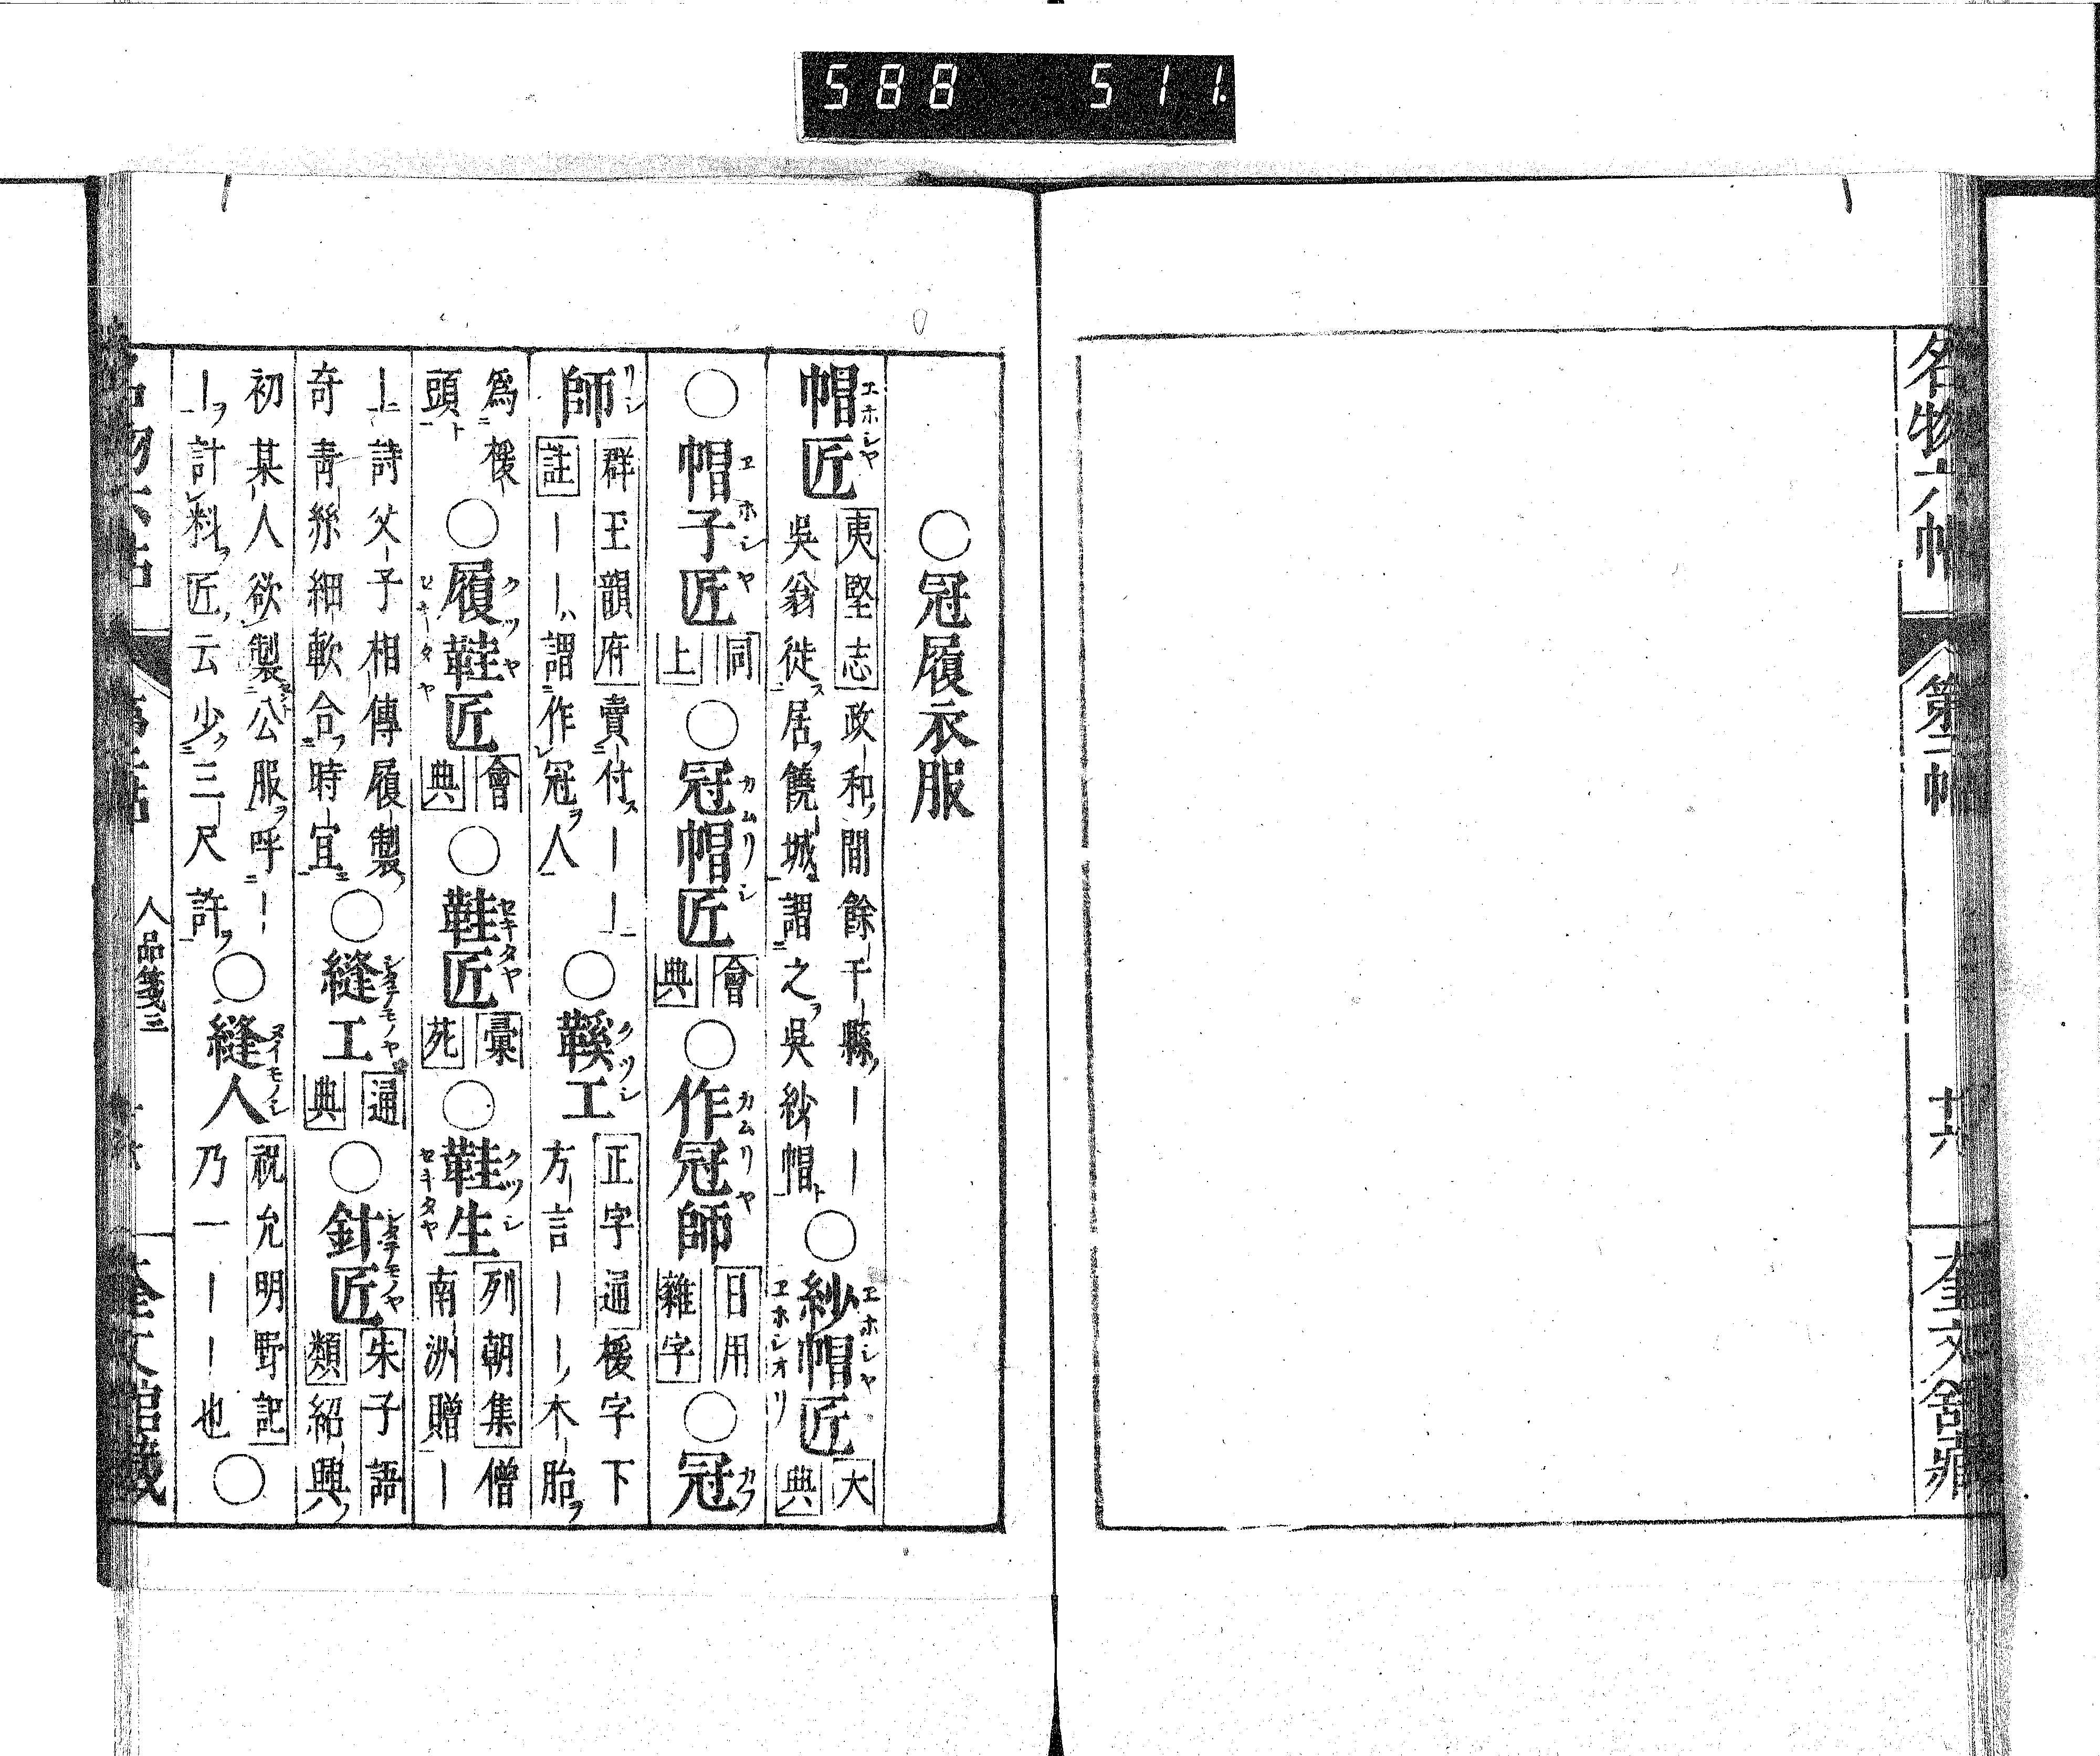 588 511
名物六帖
第二帖
十六
奎文舘藏
○冠履衣服
帽匠 エホシヤ 夷堅志 政和ノ間餘干縣ノ——
吳翁徙居饒城謂之吳紗帽 ○紗帽匠 エホシヤ エホシオリ 大典
○帽子匠 エホシヤ 同上 ○冠帽匠 カムリシ 會典 ○作冠師 カムリヤ 日用雜字 ○冠 カフ
師 リシ 群玉韻府 賣付——
註 ——謂作冠人 ○鞵工 クツシ 正字通 楥字下
方言——木胎
爲楥
頭 ○履鞋匠 クツヤ セキタヤ 會典 ○鞋匠 セキタヤ 彙苑 ○鞋生 クツシ セキタヤ 列朝集 僧
南洲贈—
—詩父子相傳履製
奇靑絲細軟合時宜 ○縫工 シタテモノヤ 通典 ○針匠 シタテモノヤ 朱子語類 紹興
初某人欲製公服呼—
—計料匠云少三尺許 ○縫人 ヌイモノシ 祝允明野記
乃一——也 ○
人品箋三